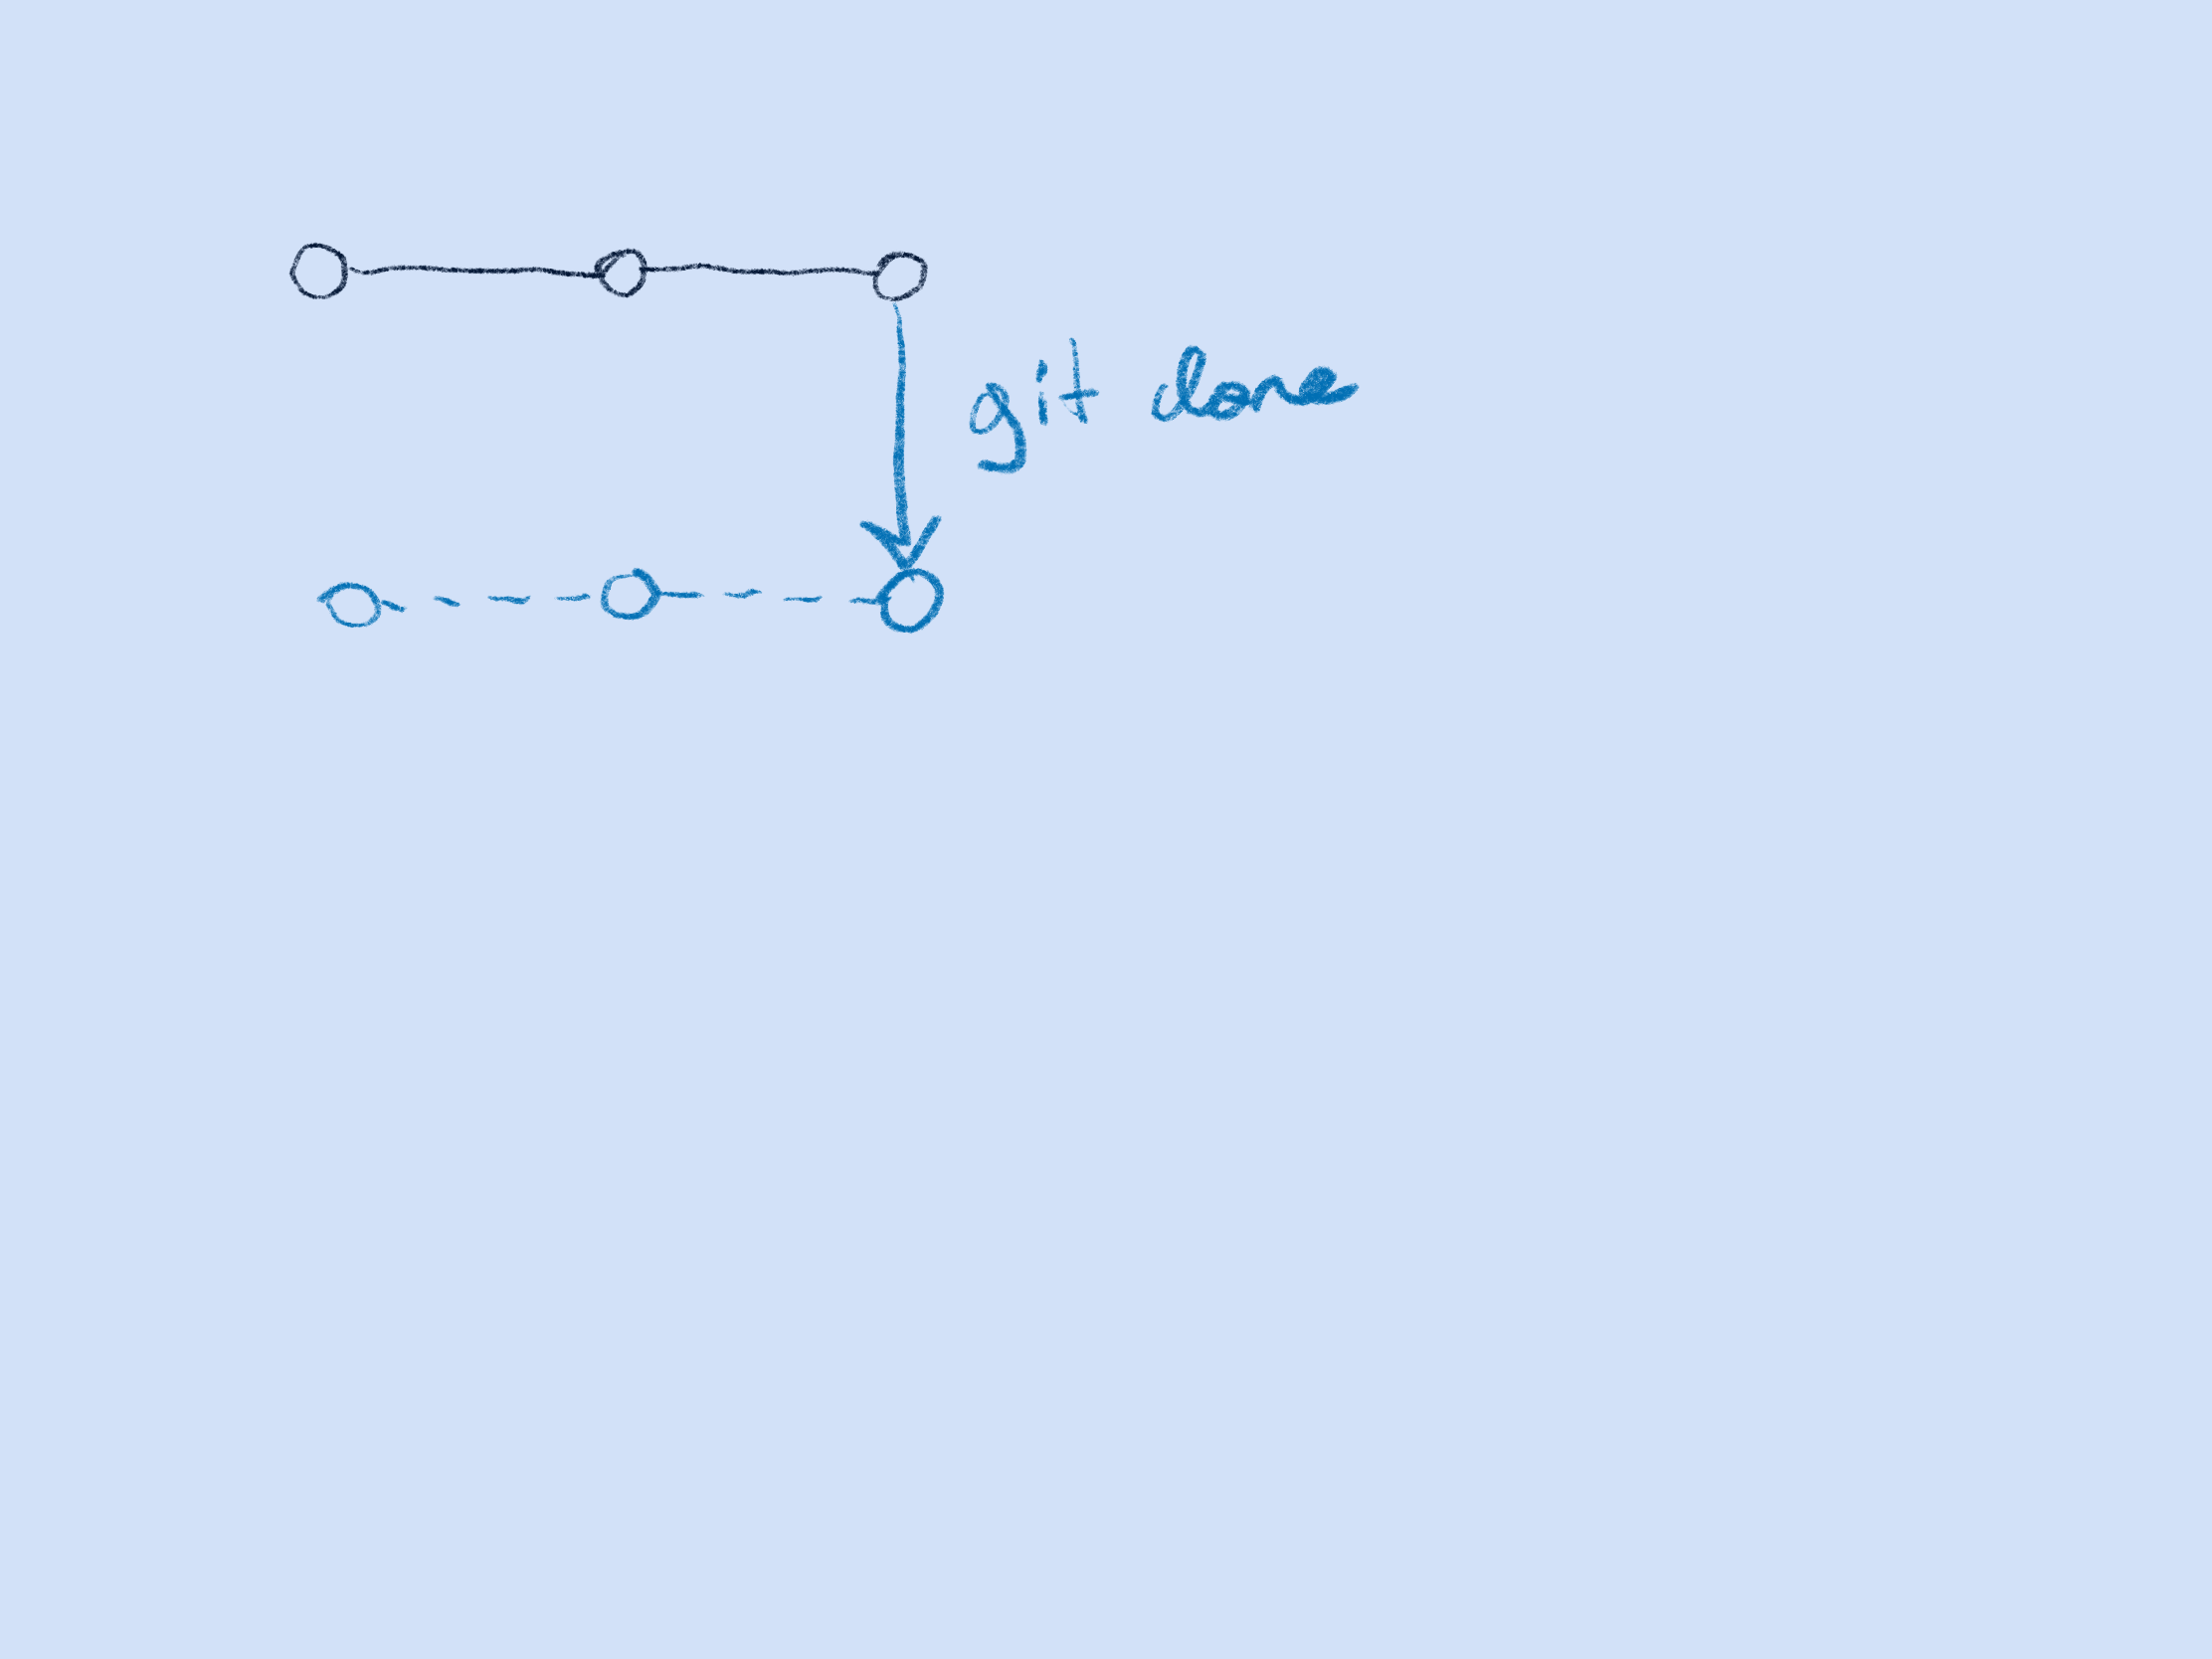 git clone